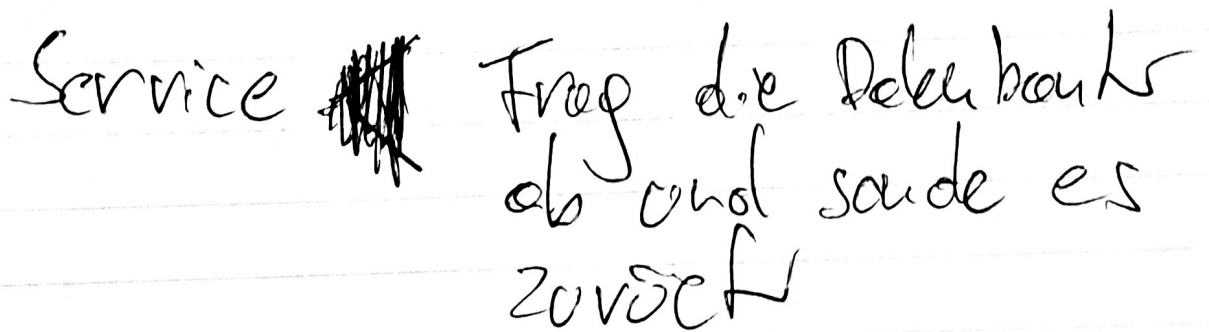 Service Frag die Datenbank
ab und sende es
zurück